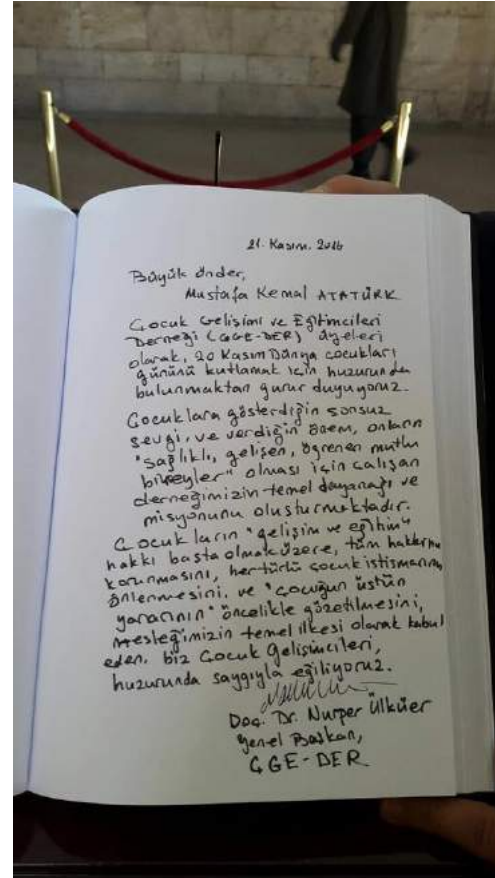 21. Kasım. 2016
Büyük önder,
Mustafa Kemal ATATÜRK
Çocuk Gelişimi ve Eğitimcileri
Derneği (ÇGE-DER) üyeleri
olarak, 20 Kasım Dünya çocukları
gününü kutlamak için huzurunda
bulunmaktan gurur duyuyoruz.
Çocuklara gösterdiğin sonsuz
sevgi, ve verdiğin önem, onların
"sağlıklı, gelişen, öğrenen mutlu
bireyler" olması için çalışan
derneğimizin temel dayanağı ve
misyonunu oluşturmaktadır.
Çocukların "gelişim ve eğitim"
hakkı başta olmak üzere, tüm
korunmasını, her türlü çocuk istismarının
önlenmesini, ve "çocuğun üstün
yararının" öncelikle gözetilmesini,
mesleğimizin temel ilkesi olarak kabul
eden, biz Çocuk Gelişimcileri,
huzurunda saygıyla eğiliyoruz.
Doç. Dr. Nurper Ülküer
Genel Başkan,
ÇGE-DER